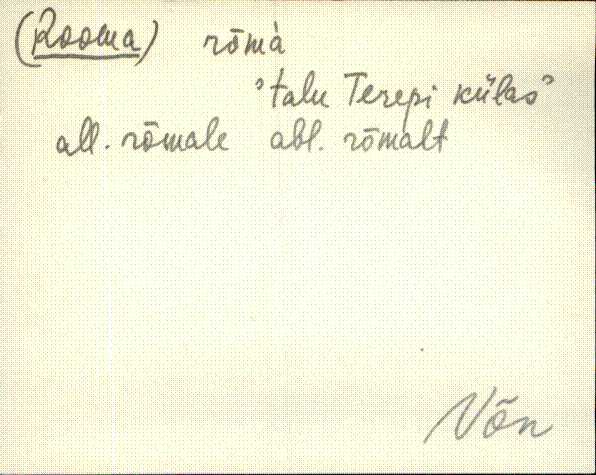 (Rooma) rōmà
"talu Terepi külas"
all. rōmale abl. rōmalt
Võn